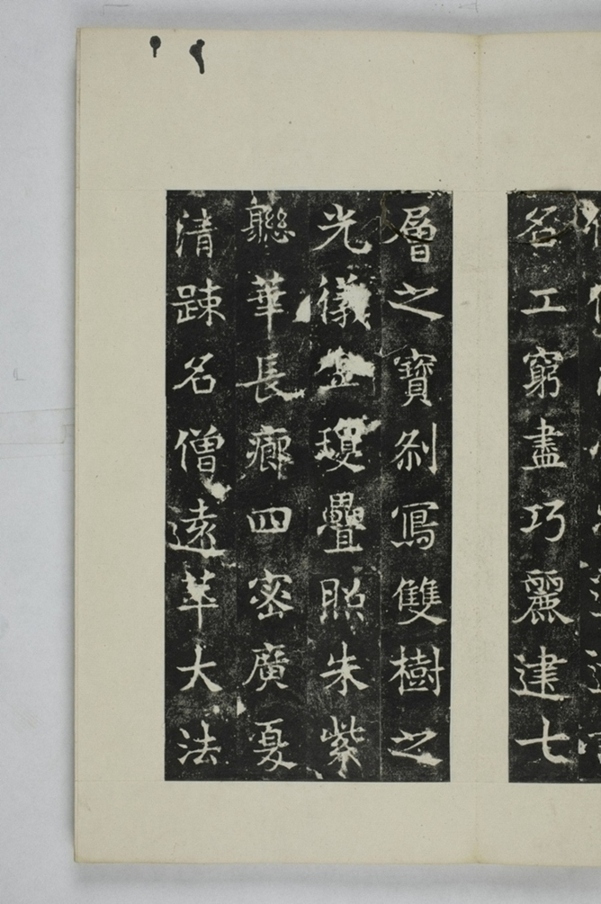 名工窮盡巧麗建七
層之寶刹冩雙樹之
光儀瓊疊照朱紫
聮華長廊四密廣夏
清踈名僧遠萃大法